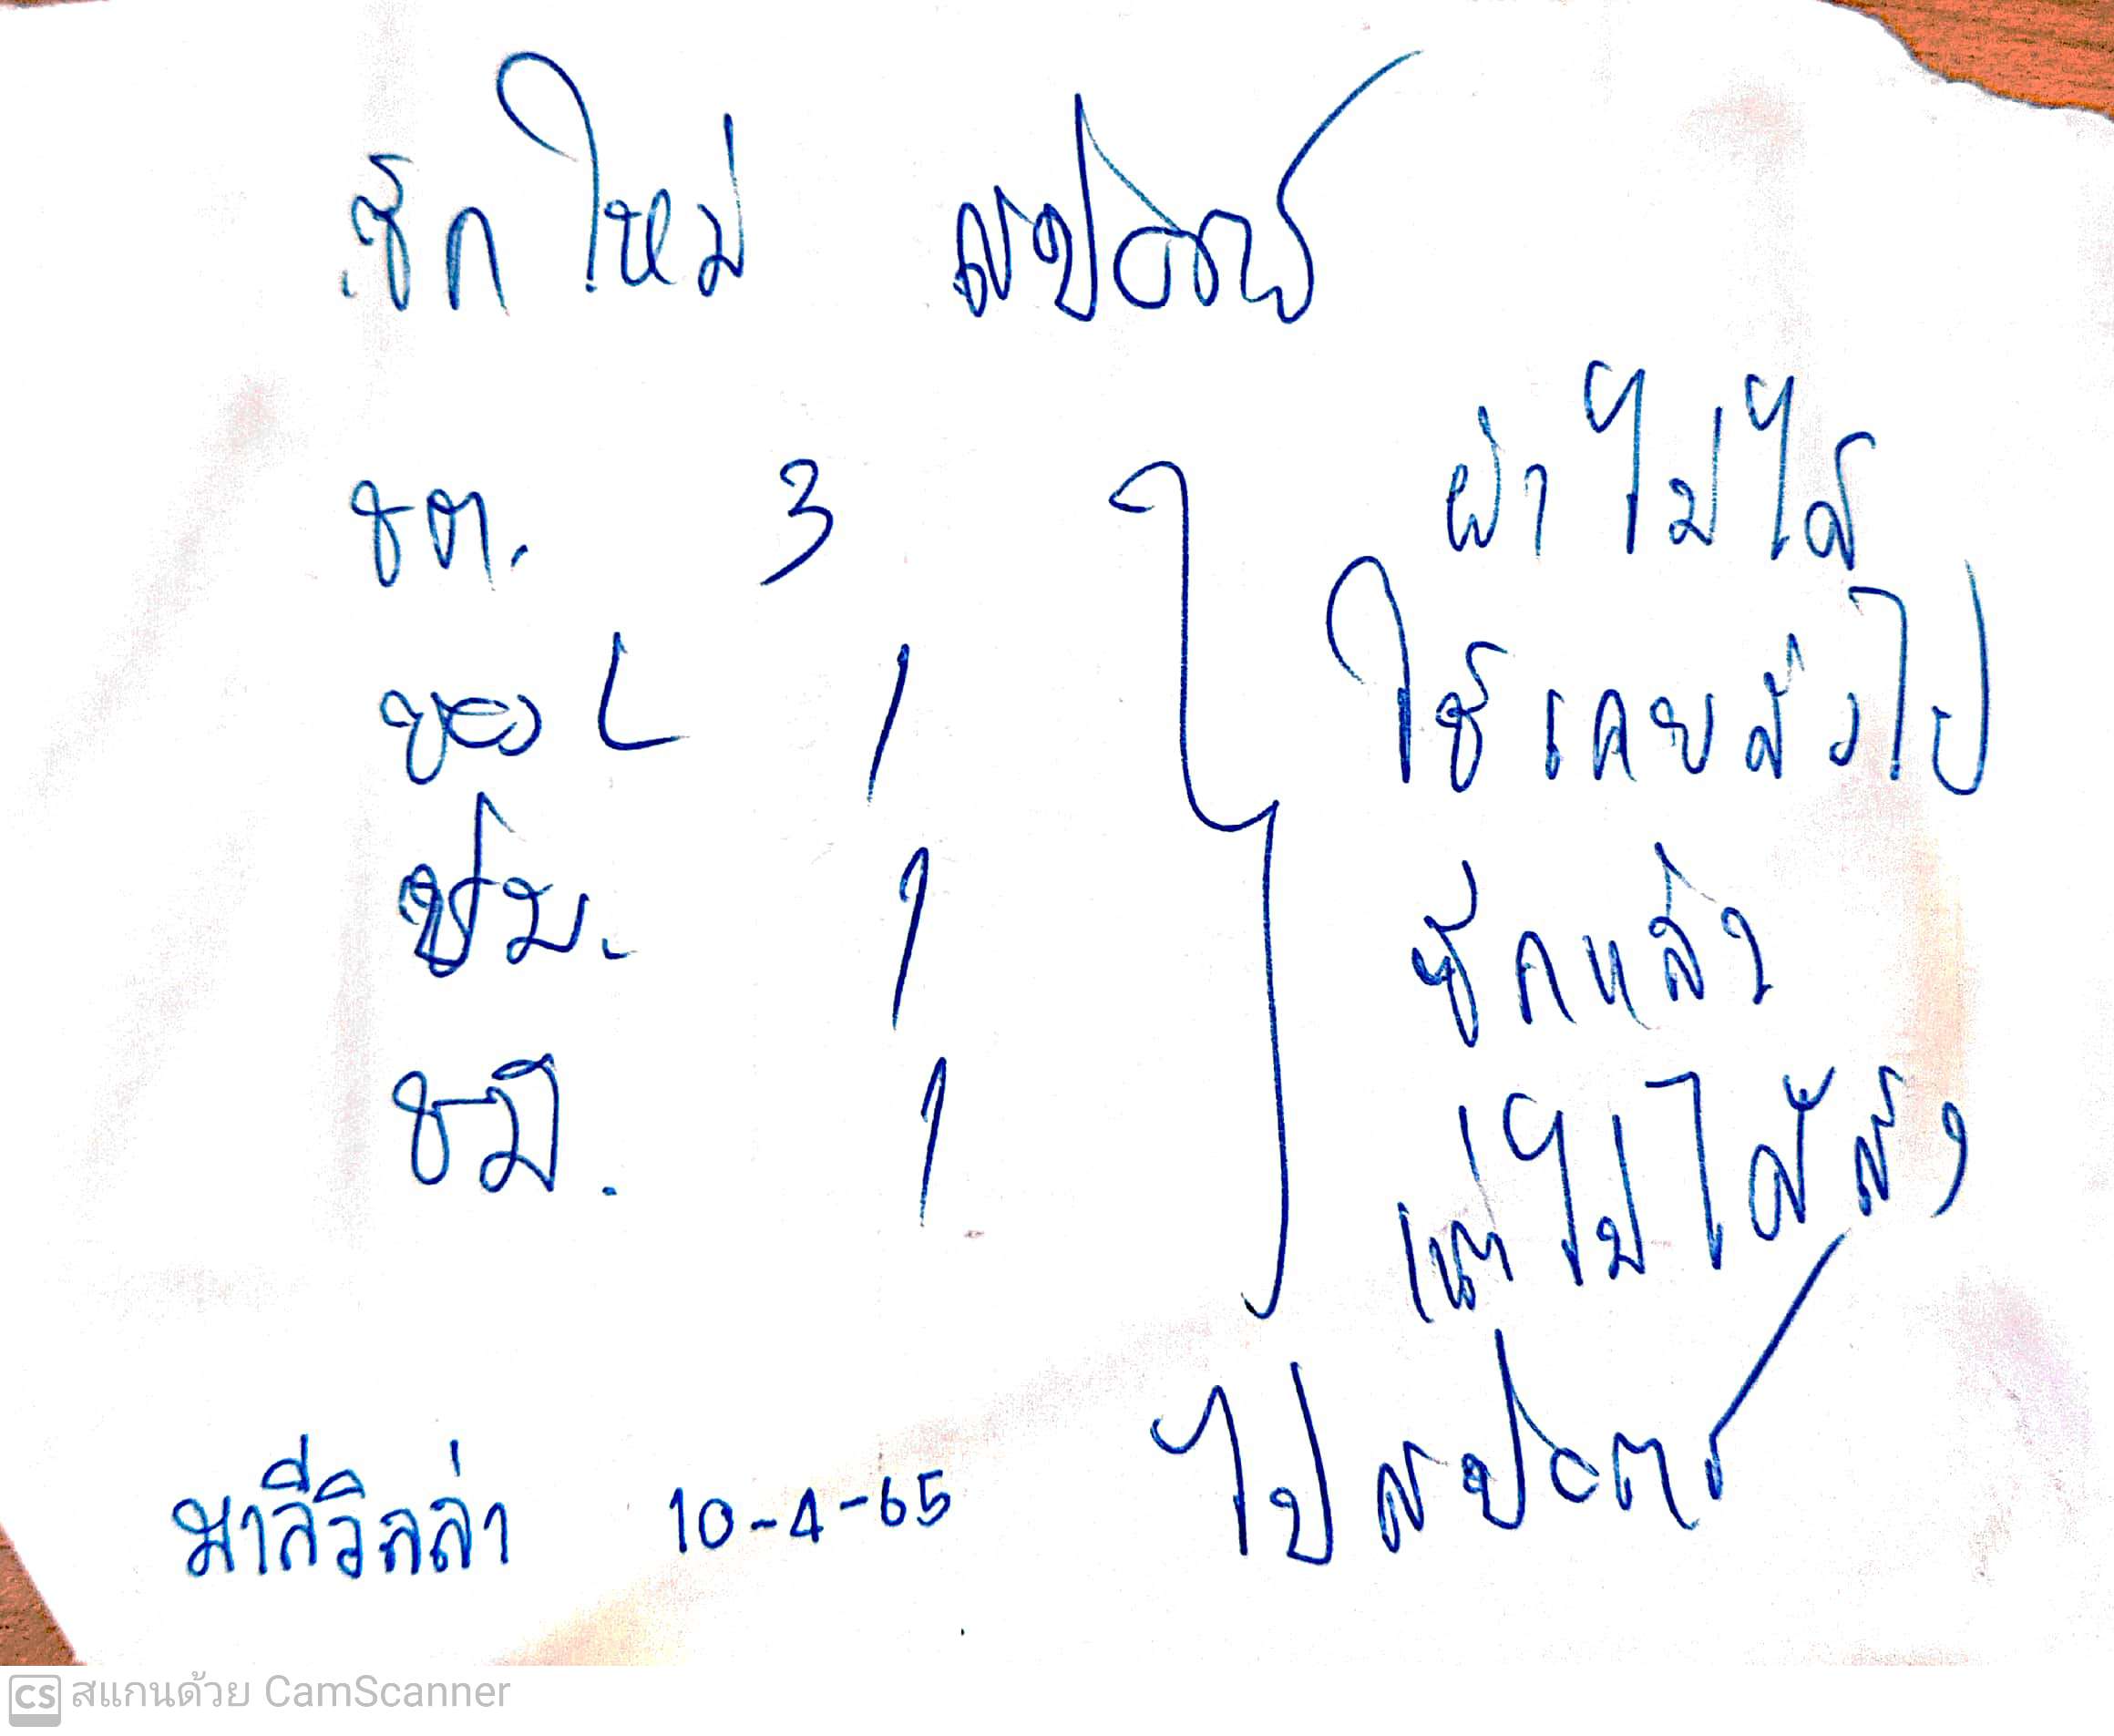 ซักใหม่ สปอตร์
ชต. 3
ซอง L 1
ชม. 1
ชมิ. 1
ผ้าไม่ได้
ใช้เคยส่งไป
ซักแล้ว
แต่ไม่ได้ส่ง
ไปสปอตร์
มาลีวิลล่า 10-4-65
CS สแกนด้วย CamScanner